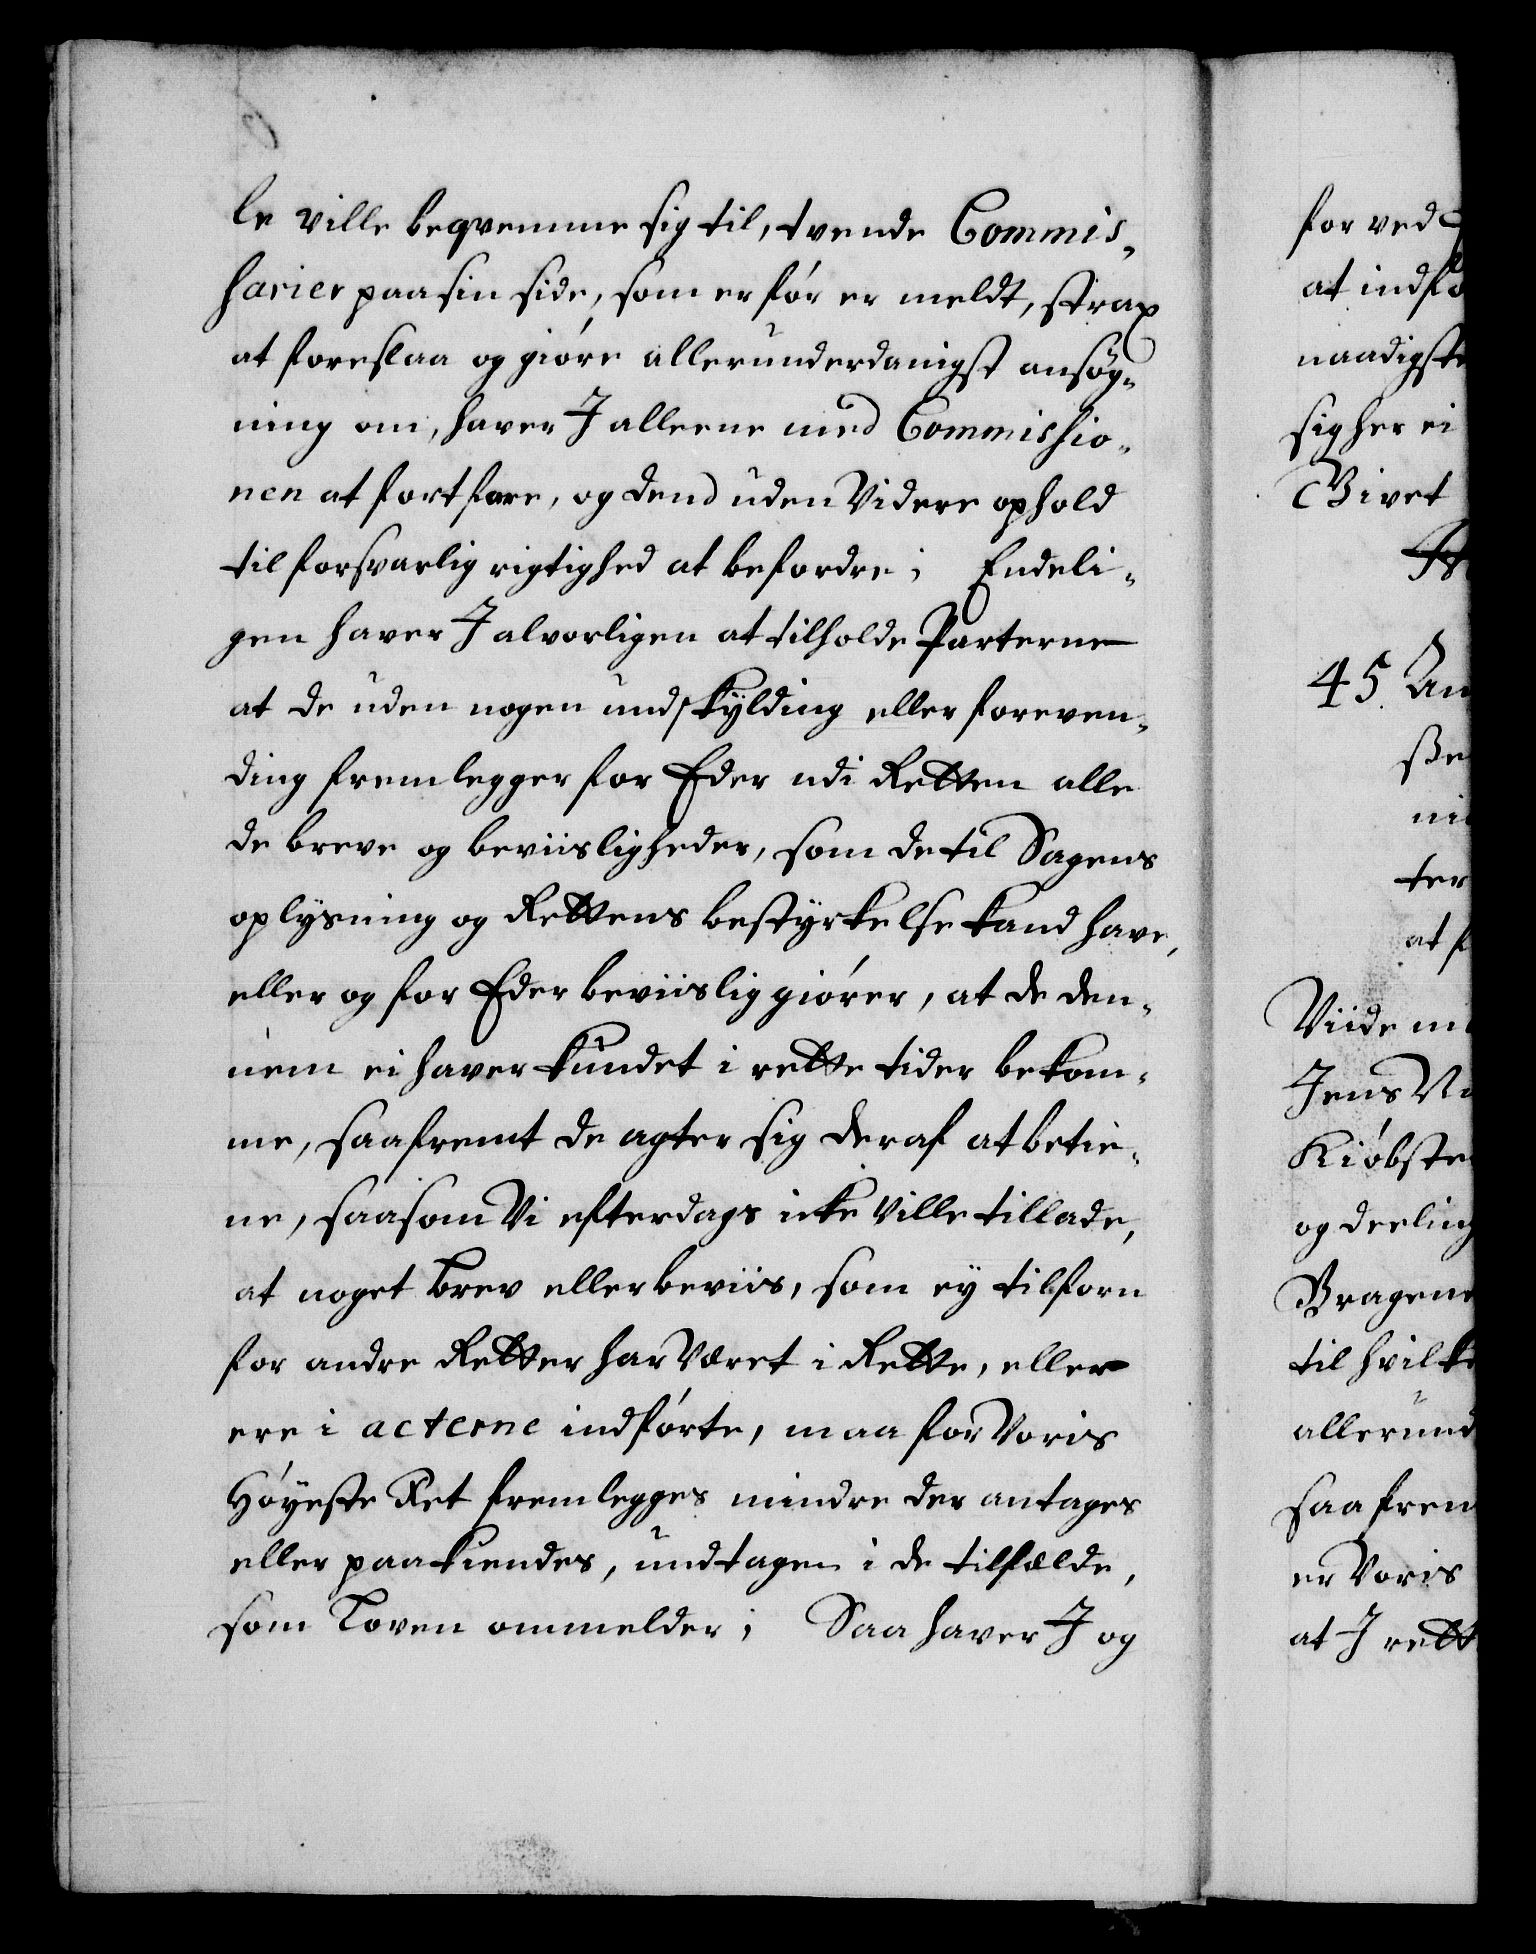 le ville beqvemme sig til, tvende Commis-
sarier paa sin side, som er før er meldt, strax
at foreslaa og giøre allerunderdanigst ansøg-
ning om, haver I alleene med Commissio-
nen at fortfare, og dend uden Videre ophold
til forsvarlig rigtighed at befordre; Endeli-
gen haver I alvorligen at tilholde Parterne
at de uden nogen undskÿlding eller foreven-
ding fremlegger for Eder udi Retten alle
de breve og beviisligheder, som de til Sagens
oplysning og Rettens bestyrkelse kand have,
eller og for Eder beviislig giører, at de den-
nem ei haver kundet i rette tider bekom-
me, saafremt de agter sig deraf at betie-
ne, saasom Vi efterdags icke Ville tillade,
at noget brev eller beviis, som eÿ tilforn
for andre Retter har Været i Rette, eller
ere i acterne indførte, maa for Voris
Høÿeste Ret fremlegges mindre der antages
eller paakiendes, undtagen i de tilfælde,
som Loven ommelder; Saa haver I og
for ved
at indfø
naadigste
sig her ei
Givet
45. An
ße
ni
ter
at f
Viide m
Jens N
Kiøbste
og deeling
Bragene
til hvilke
allerund
saafrem
er Voris
at I rett